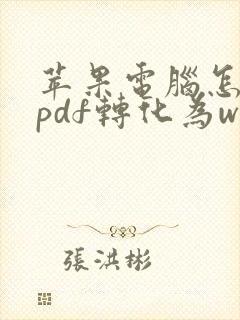 苹果電腦怎
pdf轉化為w
張洪彬